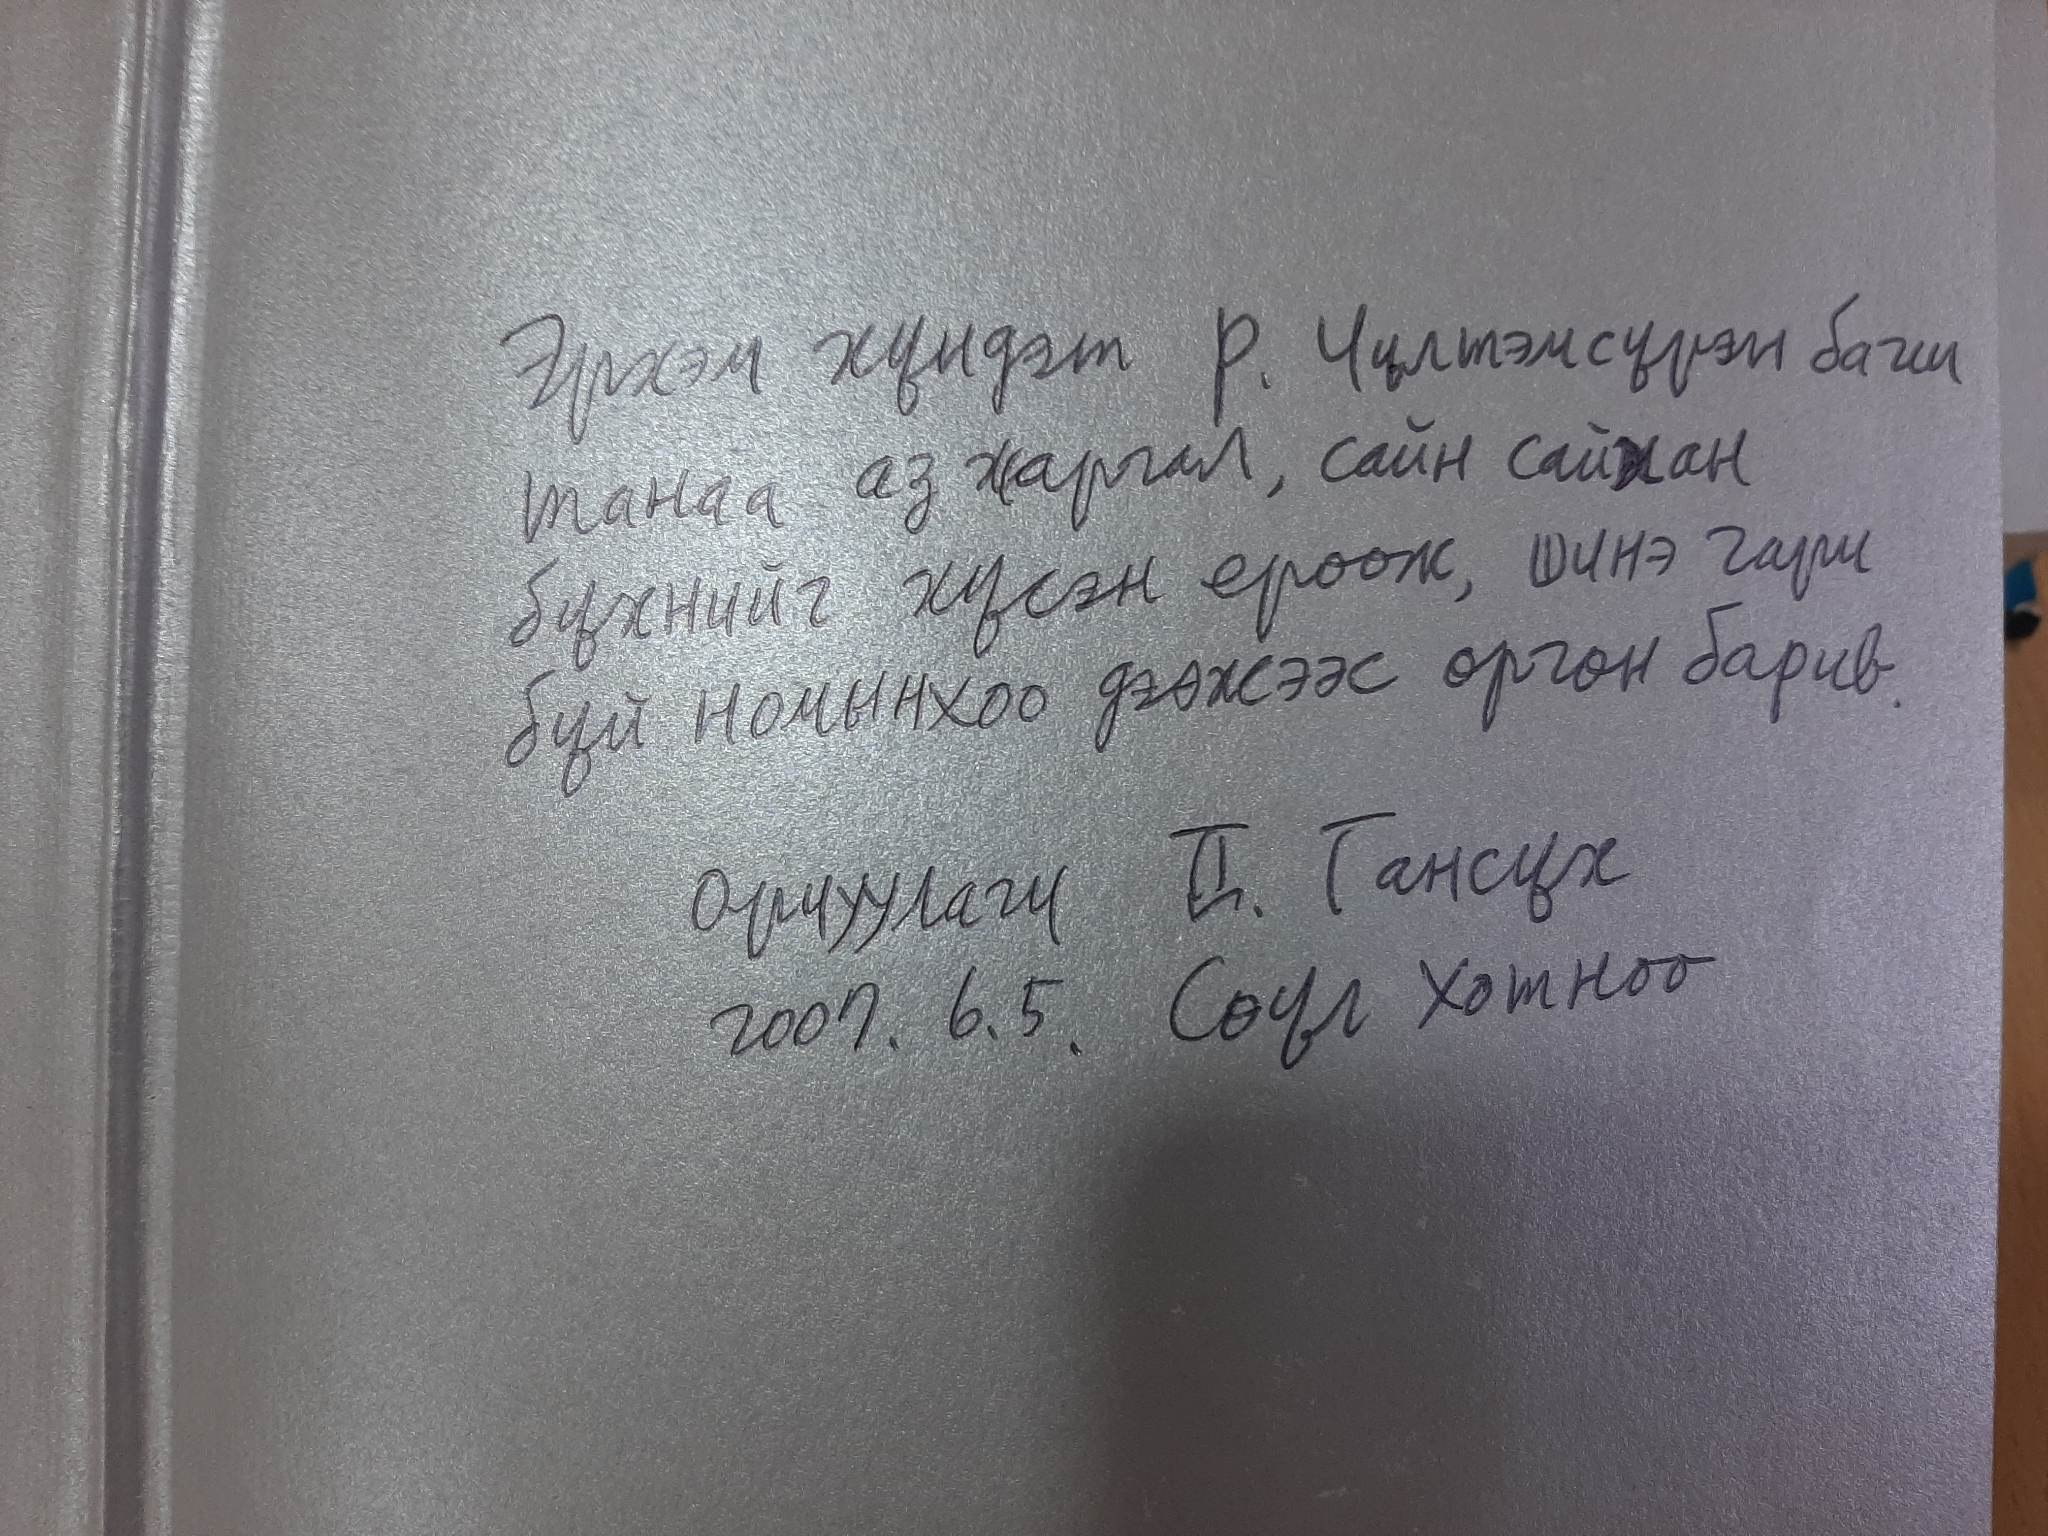 Эрхэм хүндэт Р. Чүлтэмсүрэн багш
танаа аз жаргал, сайн сайхан
бүхнийг хүсэн ерөөж, шинэ гарч
буй номынхоо дээжээс өргөн барив.
Орчуулагч Ц. Гансүх
2007. 6.5. Сөүл хотноо